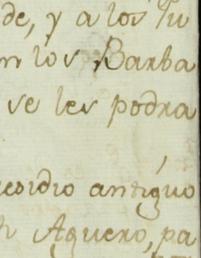 de, y a los Tu
n los Barba
se les podra
residio antiguo
Aguero, pa